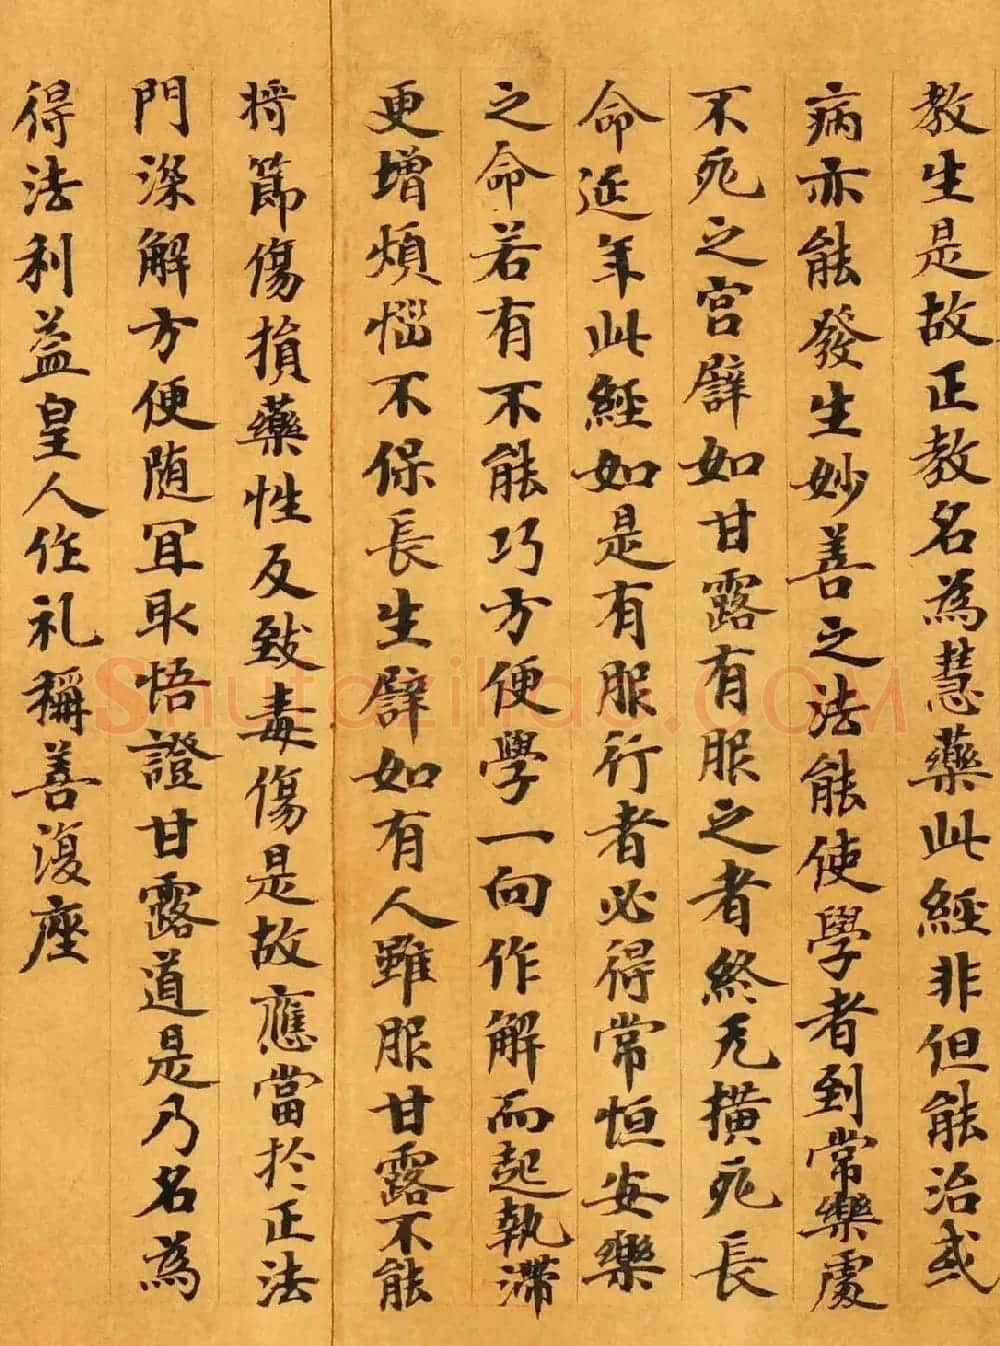 教生是故正教名為慧藥此經非但能治或
病亦能發生妙善之法能使學者到常樂處
不死之宮譬如甘露有服之者終无撗死長
命延年此經如是有服行者必得常恒安樂
之命若有不能巧方便學一向作解而起執滯
更增煩惱不保長生譬如有人雖服甘露不能
将節傷損藥性反致毒傷是故應當扵正法
門深解方便随冝取悟證甘露道是乃名為
得法利益皇人作礼稱善復座
Shufaziliao.COM